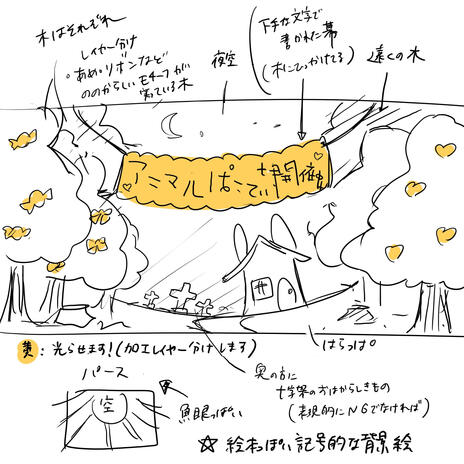 木はそれぞれ
レイヤー分け
・あめ・リボンなど
ののからしいモチーフが
実っている木
夜空
下手な文字で
書かれた幕
(木にひっかけてる)
遠くの木
アニマルぱーてぃ開催
黄:光らせます!(加工レイヤー分けします)
はらっぱ
パース
空
魚眼っぽい
奥の方に
十字架のおはからしきもの
(表現的にNGでなければ)
☆絵本っぽい記号的な背景絵